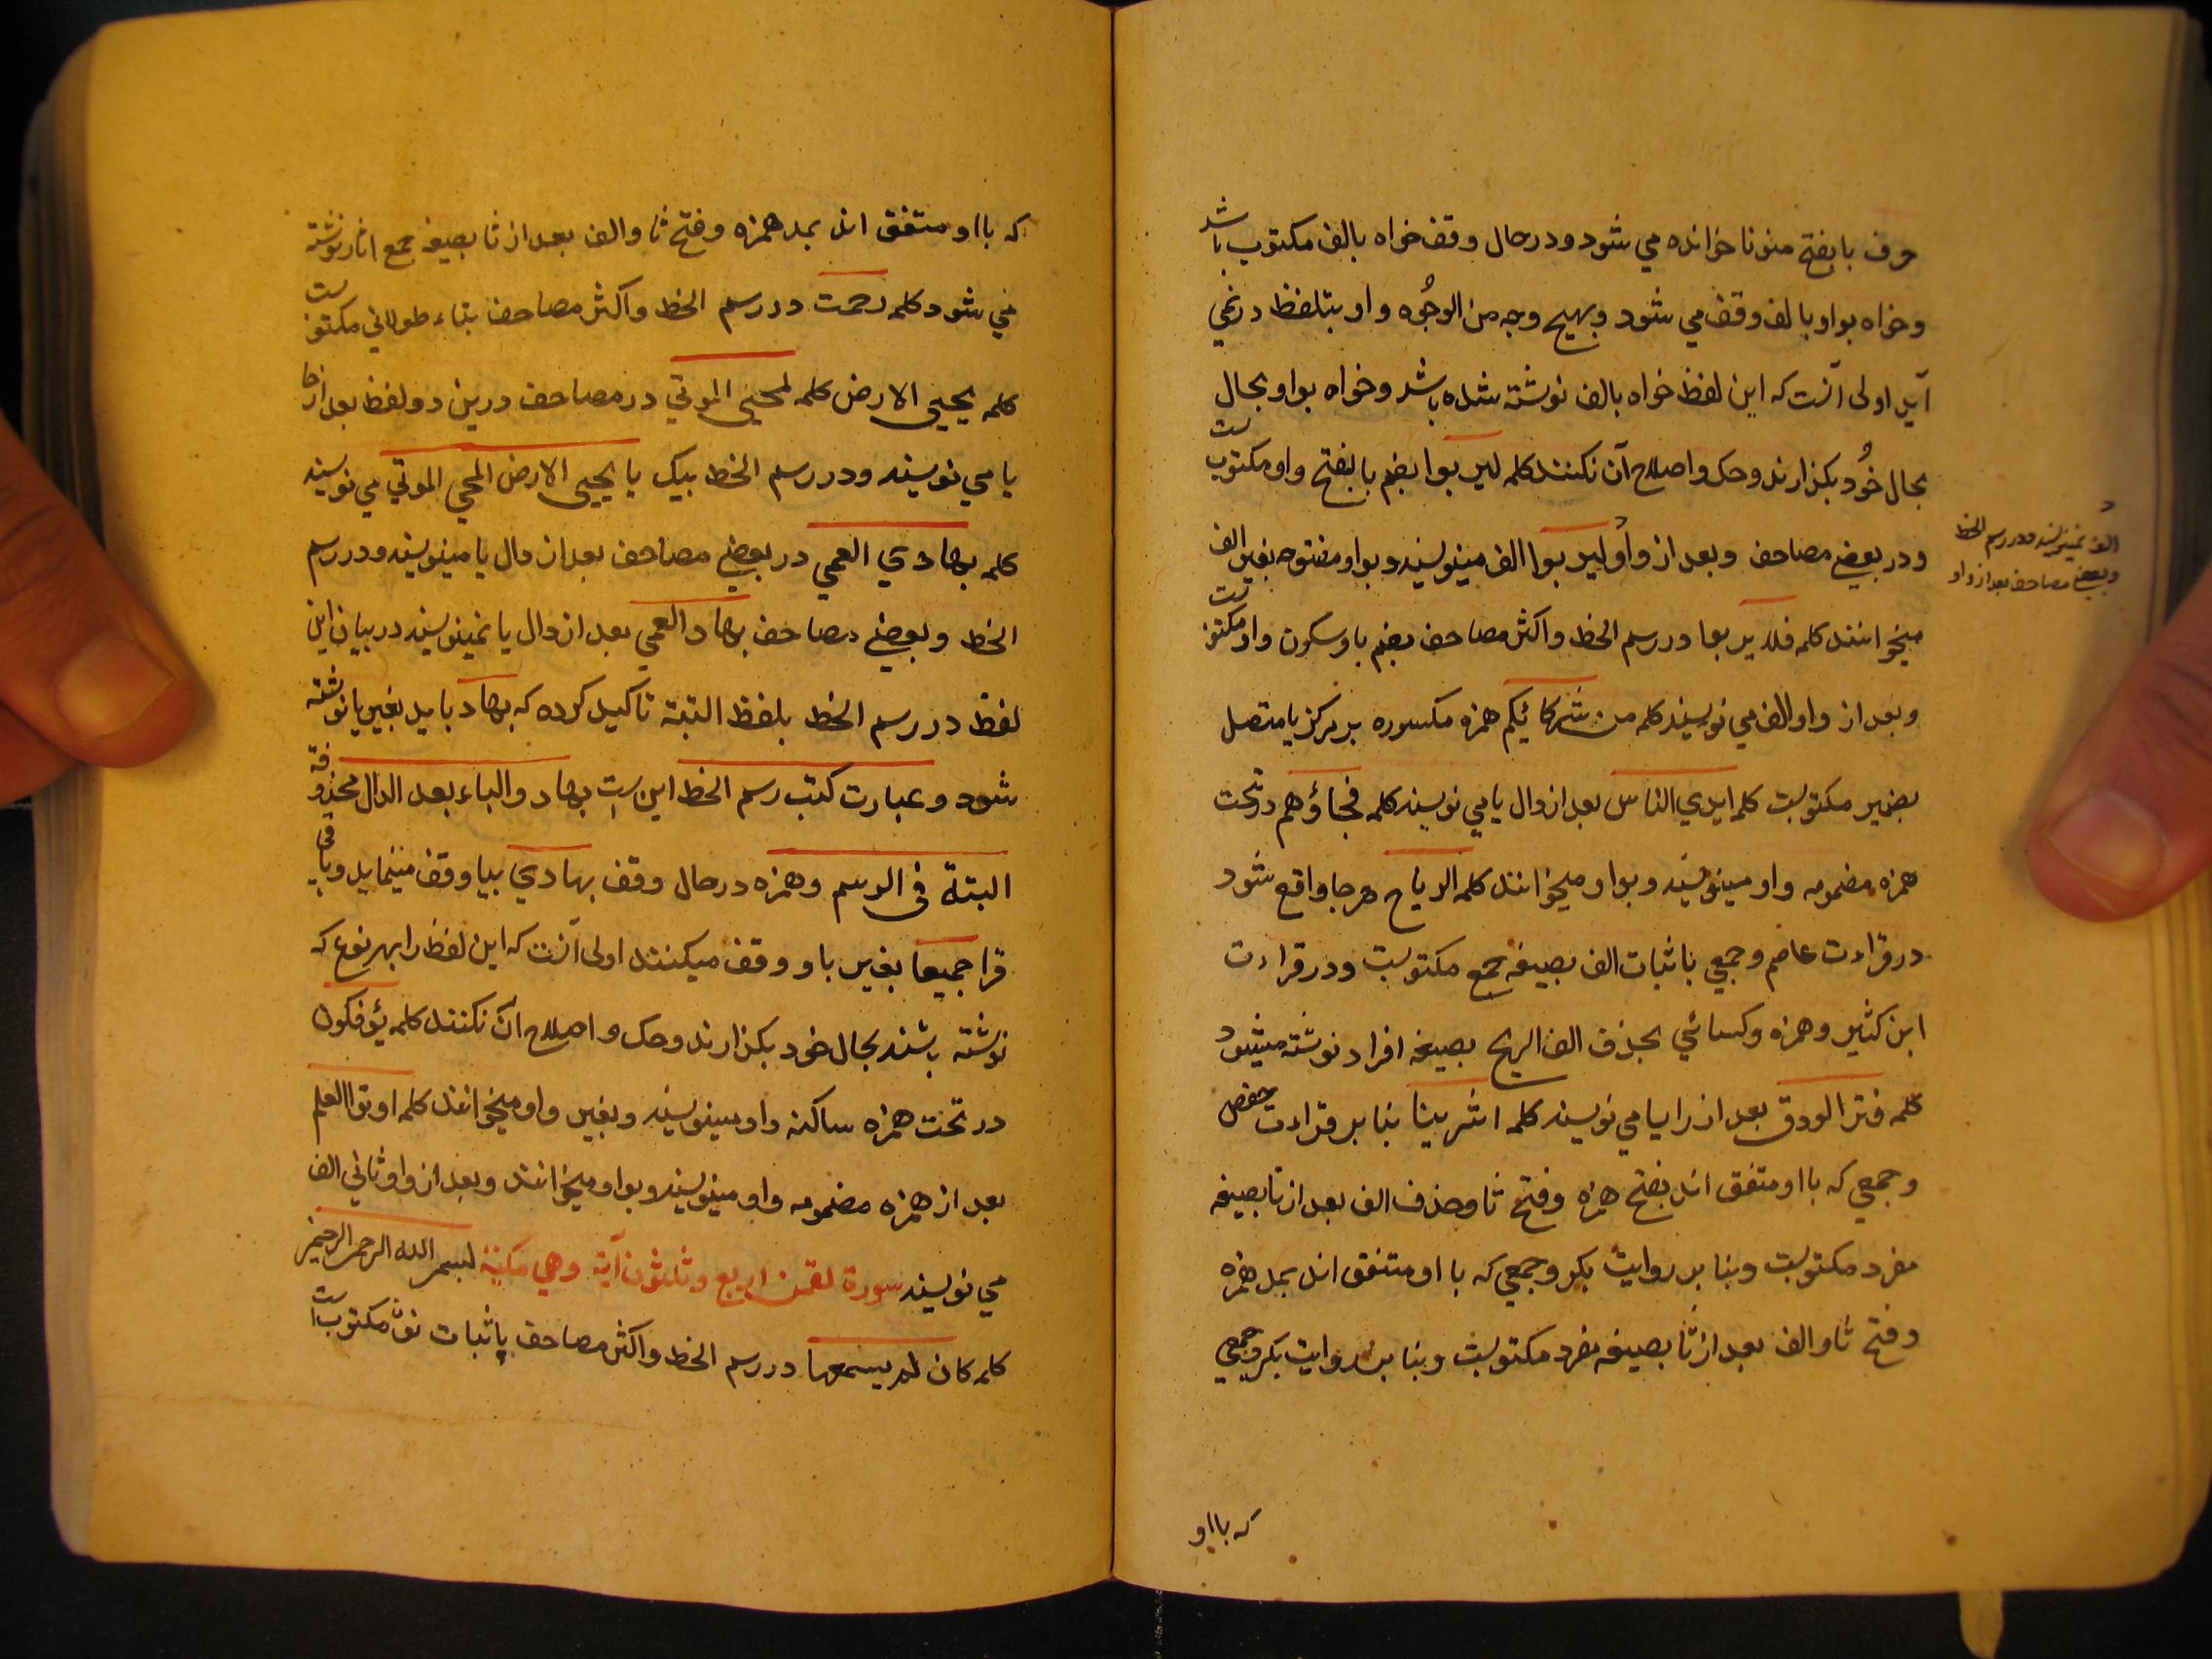 حرف با بفتح منونا خوانده می شود و در حال وقف خواه بالف مکتوب باشد
و خواه بواو بالف وقف می شود و بهیچ وجه من الوجُوه واو بتلفظ در نمی
آید اولی آنست که این لفظ خواه بالف نوشته شده باشد و خواه بواو بحال
بحال خُود بکذارند و حک و اصلاح آن نکنند کلمه لیربوا بضم با بفتح واو مکتوبست
و در بعضی مصاحف و بعد از واو لیربوا الف مینویسند و بواو مفتوحه بغیر الف
الف نمینویسند و در رسم الخط
و بعضی مصاحف بعد از واو
میخوانند کلمه فلا یربعا در رسم الخط و اکثر مصاحف بضم با و سکون واو مکتوبست
و بعد از واو الف می نویسند کلمه من شرکائیکم همزه مکسوره بر مرکز یا متصل
بضمیر مکتوبست کلمه ایدی الناس بعد از دال یا می نویسند کلمه فجاؤهم در تحت
همزه مضمومه واو مینویسند و بواو میخوانند کلمه الریاح هر جا واقع شود
در قراءت عاصم و جمعی باثبات الف بصیغه جمع مکتوبست و در قراءت
ابن کثیر و همزه و کسائی بحذف الف الریح بصیغه افراد نوشته میشود
کلمه فترا الودق بعد از را یا می نویسند کلمه اثرینا بنا بر قراءت حفص
و جمعی که با او متفق اند بفتح همزه و فتح ثا و حذف الف بعد از ثا بصیغه
مفرد مکتوبست و بنا بر روایت بکر و جمعی که با او متفق اند بمد همزه
و فتح ثا و الف بعد از ثا بصیغه مفرد مکتوبست و بنا بر روایت بکر و جمعی
که با او
که با او متفق اند بمد همزه و فتح ثا و الف بعد از ثا بصیغه جمع اثار نوشته
می شود کلمه رحمت در رسم الخط و اکثر مصاحف بتاء طولانی مکتوبست
کلمه یحیی الارض کلمه لمحیی الموتی در مصاحف درین دو لفظ بعد از حا
یا می نویسند و در رسم الخط بیک یا یحیی الارض المحی الموتی می نویسند
کلمه بهادی العمی در بعضی مصاحف بعد از دال یا مینویسند و در رسم
الخط و بعضی مصاحف بهاد العمی بعد از دال یا نمینویسند در بیان این
لفظ در رسم الخط بلفظ البته تاکید کرده که بهاد باید بغیر یا نوشته
شود و عبارت کتب رسم الخط این است بهاد والیاء بعد الدال محذوفة
البتة فی الرسم و همزه در حال وقف بهادی بیا وقف مینماید و باقی
قرا جمیعا بغیر یا و وقف میکنند اولی آنست که این لفظ را بهر نوع که
نوشته باشند بحال خود بکذارند و حک و اصلاح آن نکنند کلمه یؤفکون
در تحت همزه ساکنه واو مینویسند و بغیر واو میخوانند کلمه اوتوا العلم
بعد از همزه مضمومه واو مینویسند و بواو میخوانند و بعد از واو ثانی الف
می نویسند سورة لقمن اربع و ثلثون آیة وهی مکیة بسم الله الرحمن الرحیم
کلمه کان لم یسمعها در رسم الخط و اکثر مصاحف باثبات نون مکتوب است